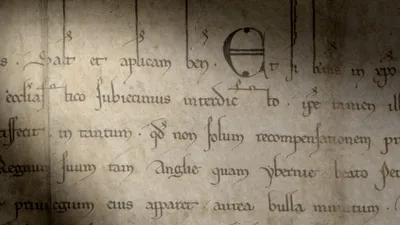 s. Salt et aplicam ben. Et si hui9 in xpo
ecclīastico subiecimus interdicto. ipse tamen ill
tisfecit. in tantum. qd non solum recompensationem pr
Regnum suum tam Anglie quam ybernie beato Pet
privilegium eius apparet aurea bulla munitum.